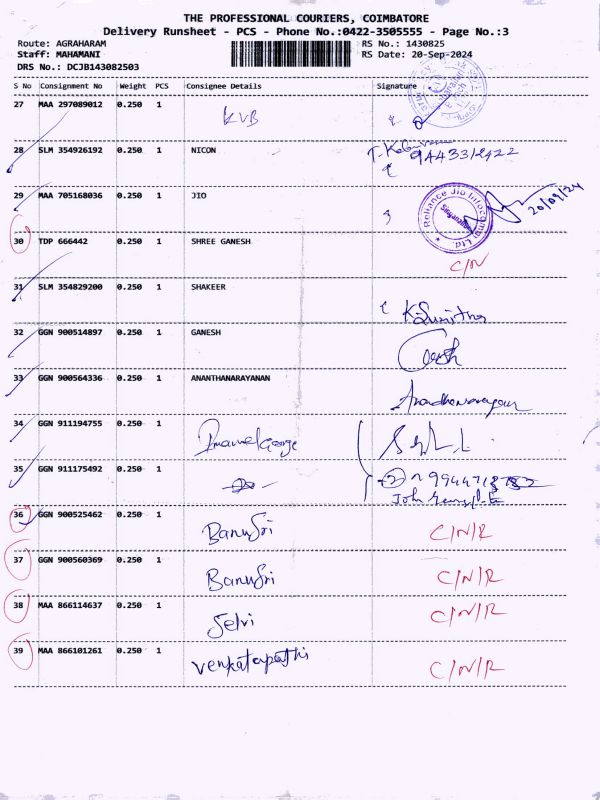 THE PROFESSIONAL COURIERS, COIMBATORE
Delivery Runsheet - PCS - Phone No.:0422-3505555 - Page No.:3
Route: AGRAHARAM RS No.: 1430825
Staff: MAHAMANI RS Date: 20-Sep-2024
DRS No.: DCJB143082503
S No Consignment No Weight PCS Consignee Details Signature
27 MAA 297089012 0.250 1 KVB
28 SLM 354926192 0.250 1 NICON
29 MAA 705168036 0.250 1 JIO Reliance Jio Infocomm Ltd. 20/09/24
30 TDP 666442 0.250 1 SHREE GANESH C/N
31 SLM 354829200 0.250 1 SHAKEER K. Sumithra
32 GGN 900514897 0.250 1 GANESH
33 GGN 900564336 0.250 1 ANANTHANARAYANAN
34 GGN 911194755 0.250 1
35 GGN 911175492 0.250 1
36 GGN 900525462 0.250 1 BanuSri C/N/R
37 GGN 900560369 0.250 1 BanuSri C/N/R
38 MAA 866114637 0.250 1 Selvi C/N/R
39 MAA 866101261 0.250 1 Venkatapathi C/N/R